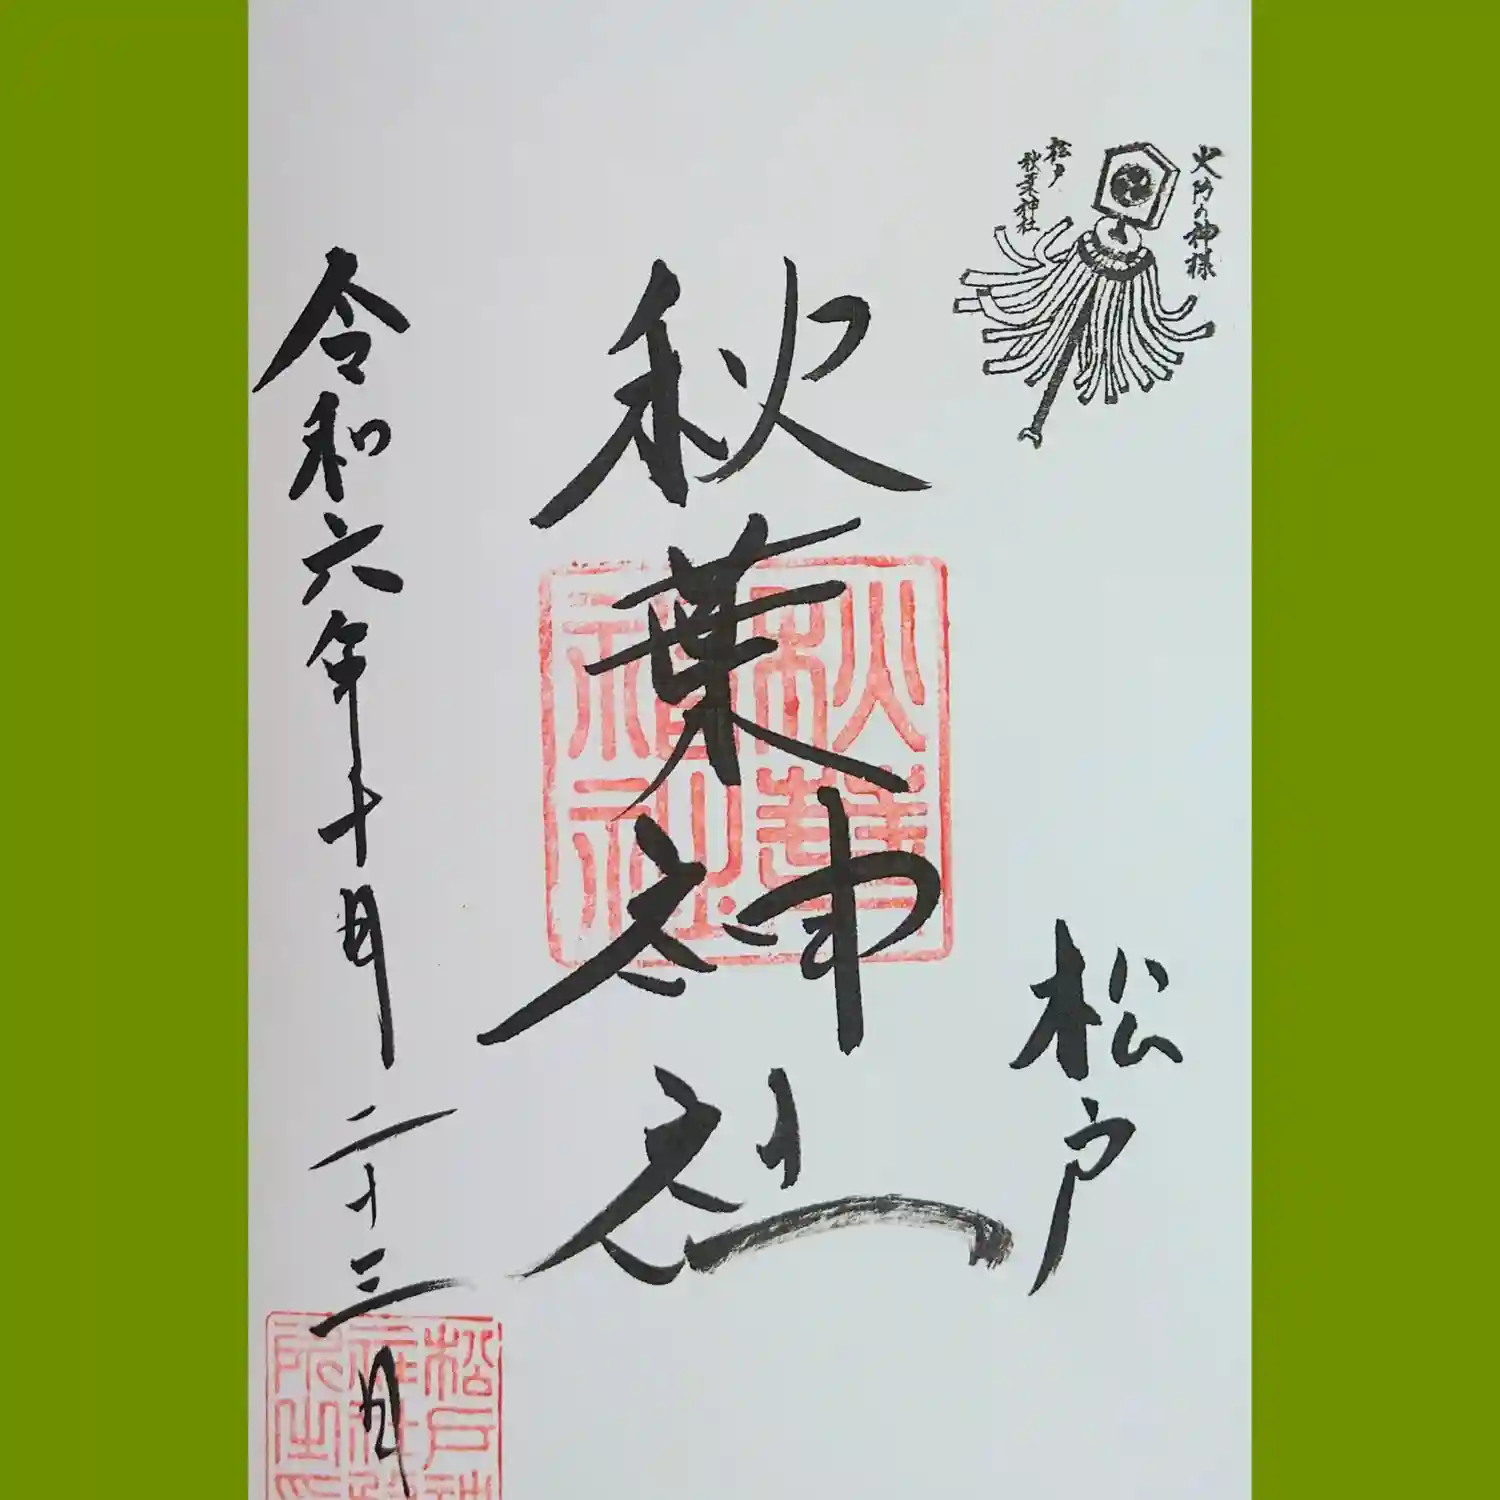 火防の神様
松戸
秋葉神社
松戸
秋葉神社
令和六年十月二十三日
秋葉神社